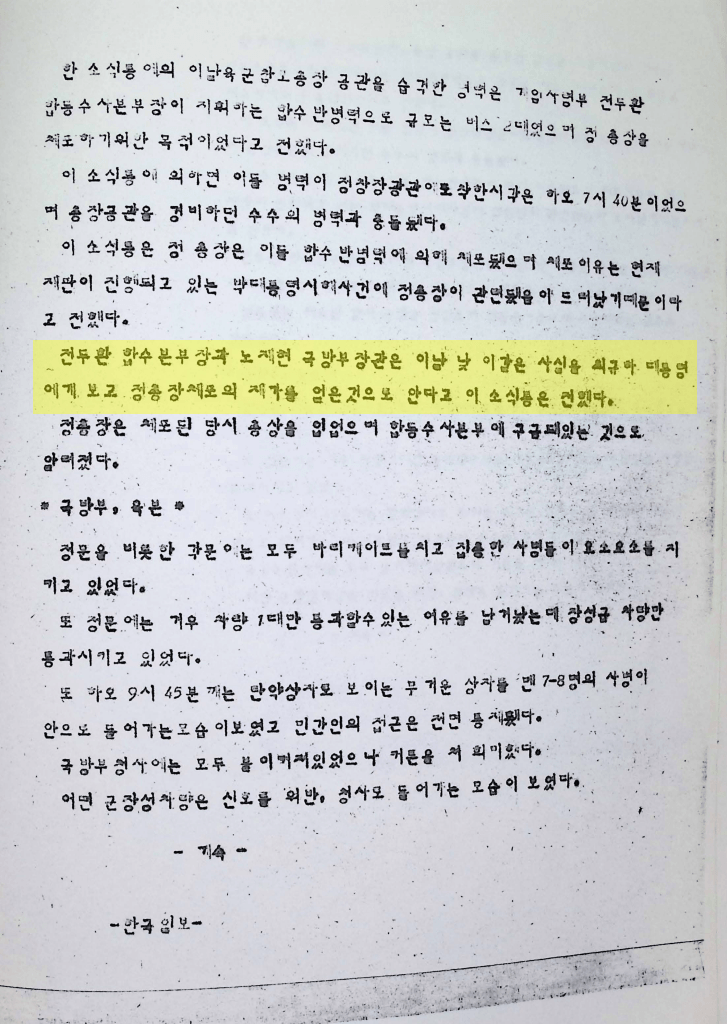 한 소식통에의 이날육군참모총장 공관을 습격한 병력은 기압사령부 전두환
합동수사본부장이 지휘하는 합수반병력으로 규모는 버스 2대였으며 정 총상을
체포하기위한 목적이었다고 전했다.
이 소식통에 의하면 이들 병력이 정창장공관에도착한시각은 하오 7시 40분이었으
며 총장공관을 경비하던 수수의 병력과 충돌됐다.
이 소식통은 정 총장은 이들 합수반병력에 의해 체포됐으며 체포이유는 현재
재판이 진행되고 있는 박대통령시해사건에 정총장이 관련됐음이 드러났기때문이라
고 전했다.
전두환 합수본부장과 노재현 국방부장관은 이날 낮 이같은 사실을 최규하 대통령
에게 보고 정총장체포의 재가를 얻은것으로 안다고 이 소식통은 전했다.
정총장은 체포된 당시 총상을 입었으며 합동수사본부에 구금돼있는 것으로
알려졌다.
* 국방부, 육본 *
정문을 비롯한 각문에는 모두 바리케이트를치고 집총한 사병들이 요소요소를 지
키고 있었다.
또 정문에는 겨우 차량 1대만 통과할수있는 여유를 남겨놨는데 장성급 차량만
통과시키고 있었다.
또 하오 9시 45분께는 탄약상자로 보이는 무거운 상자를 멘 7-8명의 사병이
안으로 들어가는모습이보였고 민간인의 접근은 전면 통제됐다.
국방부청사에는 모두 불이켜져있었으나 커튼을 쳐 희미했다.
어떤 군장성차량은 신호를 위반, 청사로 들어가는 모습이 보였다.
- 계속 -
-한국일보-